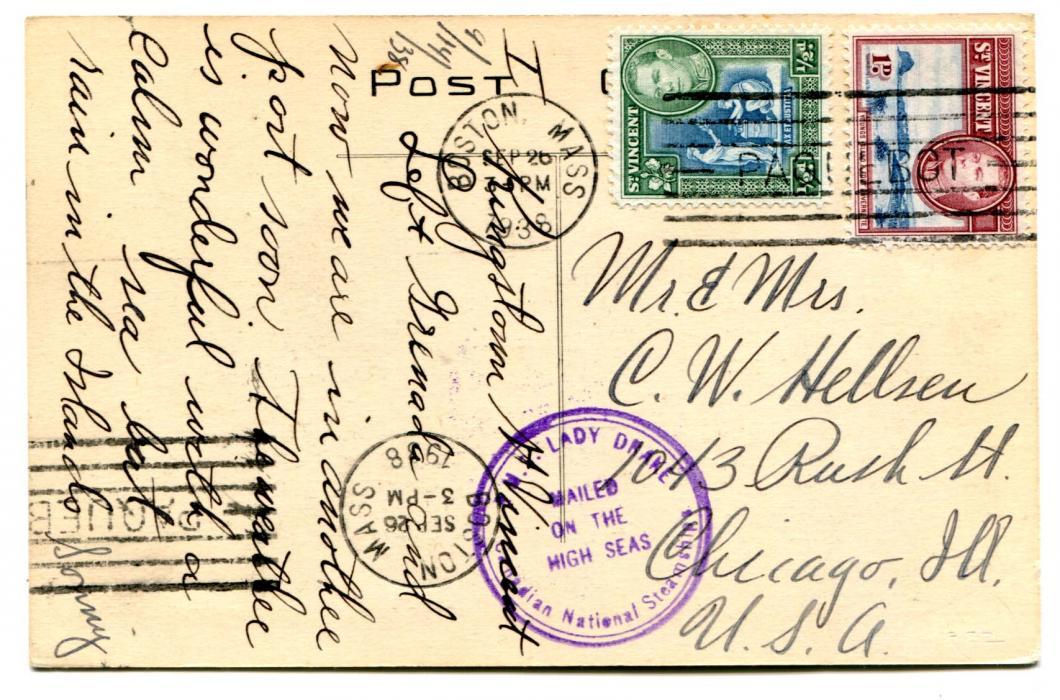 POST C
9/14/38
I
Kingstown St. Vincent
Left Grenada and
now we are in another
port soon. The weather
is wonderful with a
Calm sea but
rain in the Islands
Mr. & Mrs.
C. W. Hellsen
1043 Rush St.
Chicago, Ill.
U. S. A.
BOSTON, MASS
SEP 26
3-PM
1938
PAQUEBOT
ST VINCENT
½D
½D
PAX ET JUSTITIA
ST VINCENT
1D
BOSTON MASS
SEP 26
3-PM
1938
PAQUEB
LADY DRAKE
MAILED
ON THE
HIGH SEAS
Canadian National Steamship